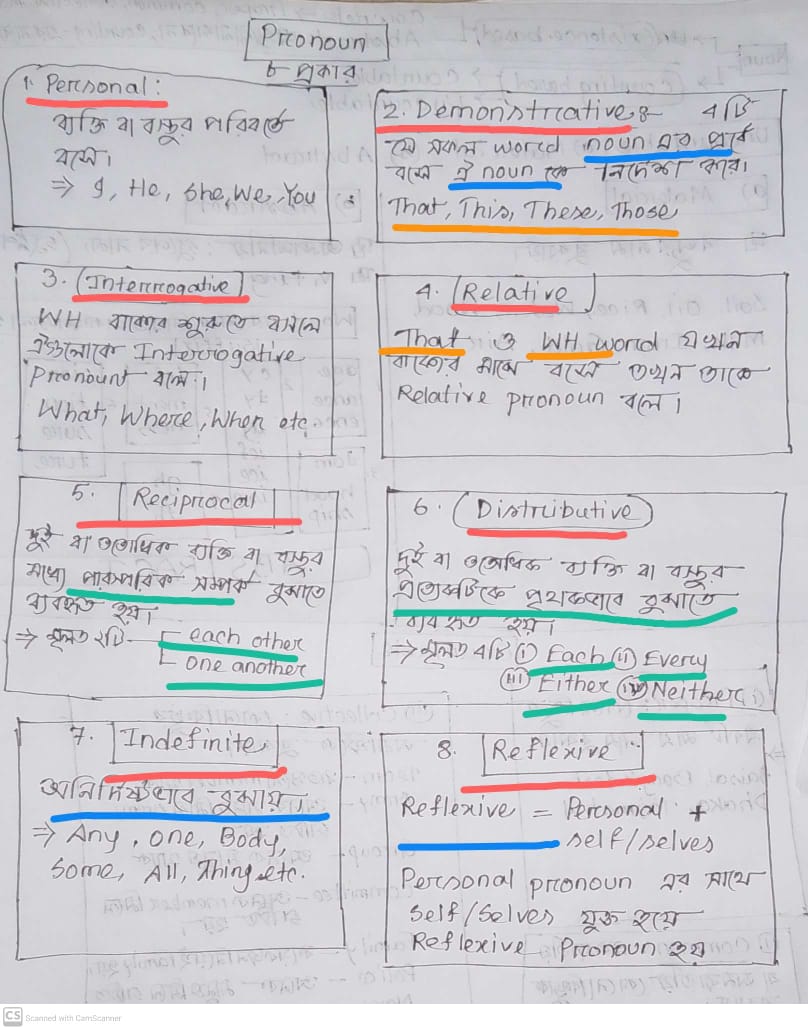 Pronoun
৮ প্রকার
1. Personal:
ব্যক্তি বা বস্তুর পরিবর্তে
বসে।
⇒ I, He, She, We, You
2. Demonstrative: ৪টি
যে সকল world noun এর পূর্বে
বসে ঐ noun কে নির্দেশ করে।
That, This, These, Those
3. Interrogative
WH বাক্যের শুরুতে বসলে
এগুলোকে Interrogative
Pronount বলে।
What, Where, When etc.
4. Relative
That ও WH world যখন
বাক্যের মাঝে বসে তখন তাকে
Relative pronoun বলে।
5. Reciprocal
দুই বা ততোধিক ব্যক্তি বা বস্তুর
মধ্যে পারস্পরিক সম্পর্ক বুঝাতে
ব্যবহৃত হয়।
⇒ মূলত ২টি- each other
one another
6. Distributive
দুই বা ততোধিক ব্যক্তি বা বস্তুর
প্রত্যেকটিকে পৃথকভাবে বুঝাতে
ব্যবহৃত হয়।
⇒ মূলত ৪টি (i) Each (ii) Every
(iii) Either (iv) Neither
7. Indefinite
অনির্দিষ্টভাবে বুঝায়,
⇒ Any, one, Body,
Some, All, Thing etc.
8. Reflexive
Reflexive = Personal +
self/selves
Personal pronoun এর সাথে
Self/Selves যুক্ত হয়ে
Reflexive Pronoun হয়
CS Scanned with CamScanner